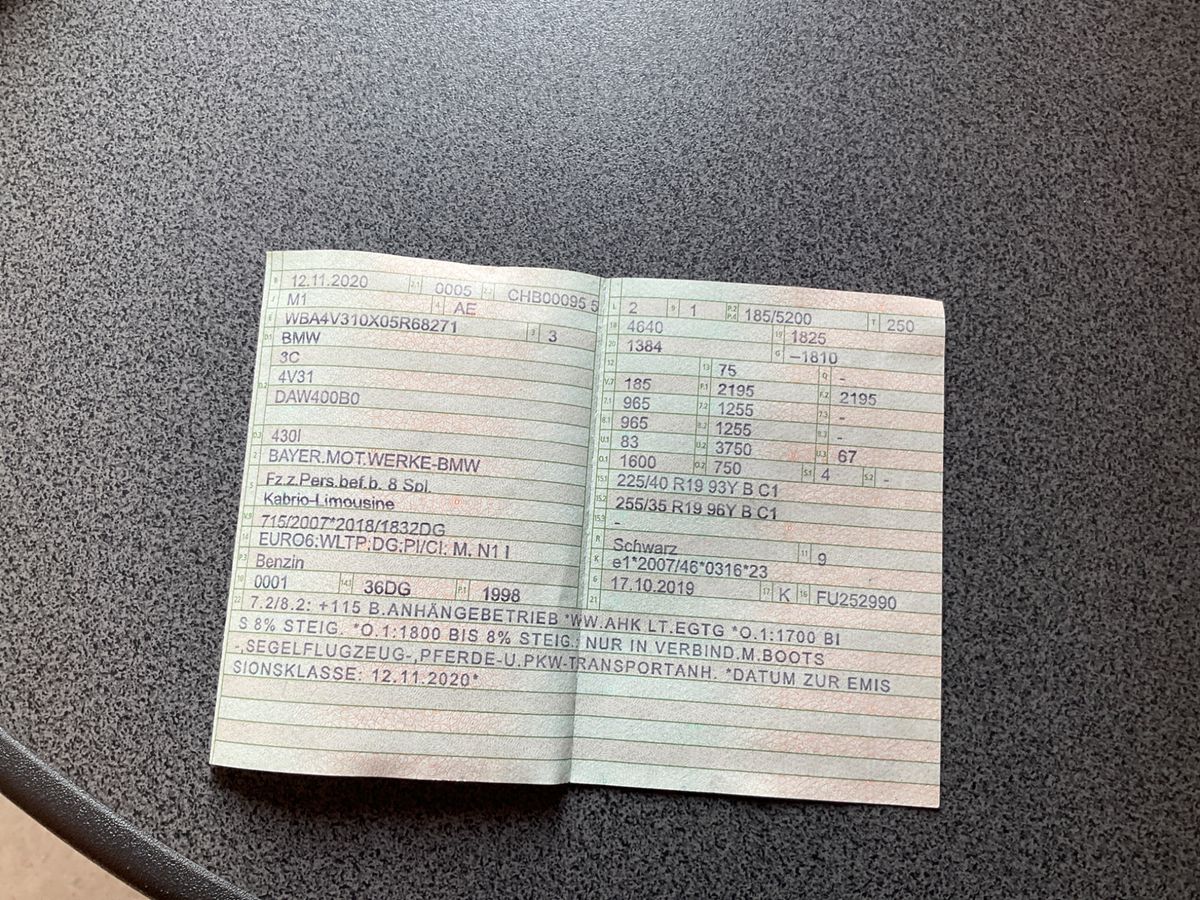 B 12.11.2020 2.1 0005 2.2 CHB00095 5
J M1 4 AE
E WBA4V310X05R68271 3 3
D.1 BMW
3C
D.2 4V31
DAW400B0
D.3 430I
2 BAYER.MOT.WERKE-BMW
Fz.z.Pers.bef.b. 8 Spl.
5 Kabrio-Limousine
V.9 715/2007*2018/1832DG
14 EURO6;WLTP;DG;PI/CI; M, N1 I
P.3 Benzin
10 0001 14.1 36DG P.1 1998
L 2 9 1 P.2 P.4 185/5200 T 250
18 4640 19 1825
20 1384 G –1810
12 13 75 Q -
V.7 185 F.1 2195 F.2 2195
7.1 965 7.2 1255 7.3 -
8.1 965 8.2 1255 8.3 -
U.1 83 U.2 3750 U.3 67
O.1 1600 O.2 750 S.1 4 S.2 -
15.1 225/40 R19 93Y B C1
15.2 255/35 R19 96Y B C1
15.3 -
R Schwarz 11 9
K e1*2007/46*0316*23
6 17.10.2019 17 K 16 FU252990
21
22 7.2/8.2: +115 B.ANHÄNGEBETRIEB *WW.AHK LT.EGTG *O.1:1700 BI
S 8% STEIG. *O.1:1800 BIS 8% STEIG., NUR IN VERBIND.M.BOOTS
-,SEGELFLUGZEUG-,PFERDE-U.PKW-TRANSPORTANH. *DATUM ZUR EMIS
SIONSKLASSE: 12.11.2020*